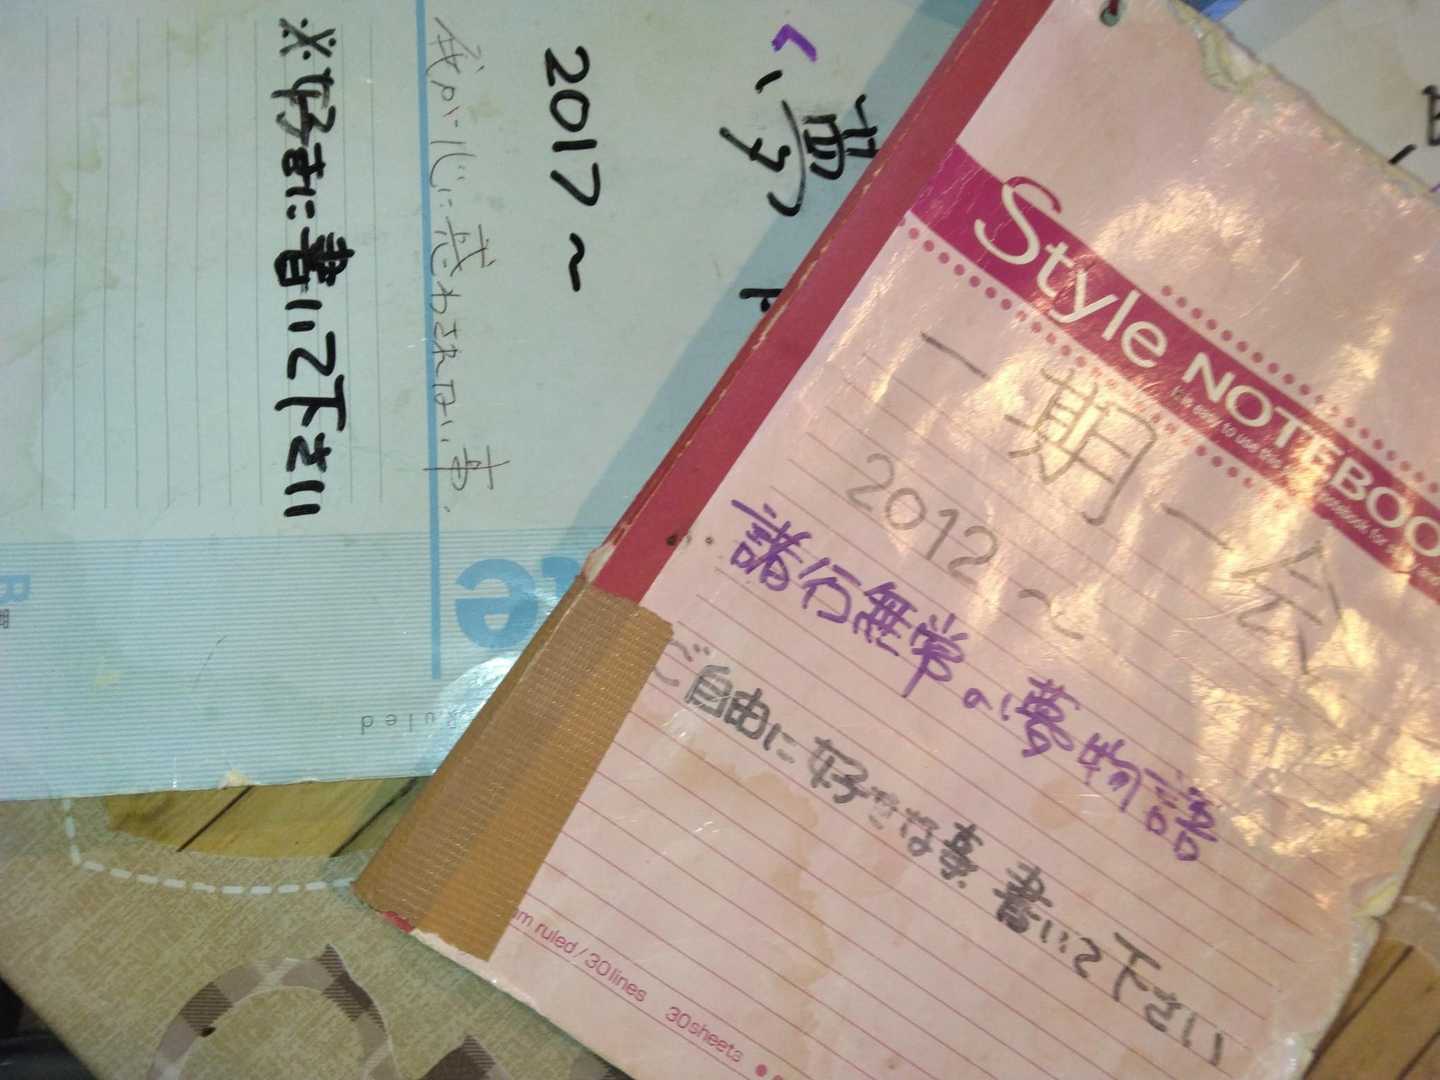 Style NOTEBOO
一期一会
2012～
諸行無常の夢物語
ご自由に好きな事書いて下さい
mm ruled / 30 lines 30 sheets
夢
2017～
我が心に惑わされない事
※好きに書いて下さい
Ruled